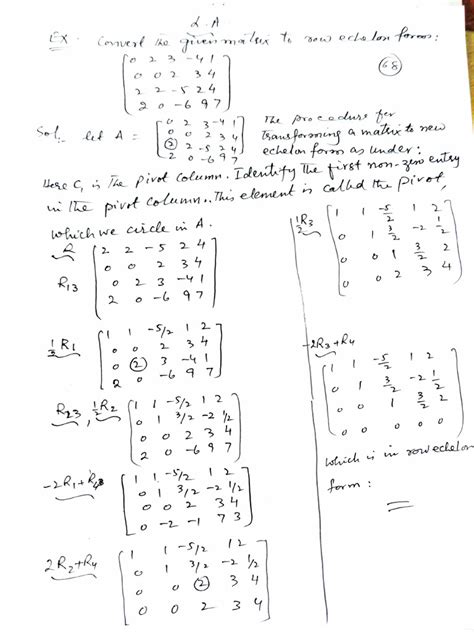 L.A
Ex. Convert the given matrix to row echelon form:
0 2 3 -4 1
0 0 2 3 4
2 2 -5 2 4
2 0 -6 9 7
68
Sol. let A =
0 2 3 -4 1
0 0 2 3 4
2 2 -5 2 4
2 0 -6 9 7
The procedure for
transforming a matrix to row
echelon form as under:
Here C1 is the Pivot column. Identify the first non-zero entry
in the pivot column. This element is called the pivot,
which we circle in A.
R
R13
2 2 -5 2 4
0 0 2 3 4
0 2 3 -4 1
2 0 -6 9 7
1/2 R1
1 1 -5/2 1 2
0 0 2 3 4
0 2 3 -4 1
2 0 -6 9 7
R23, 1/2 R2
1 1 -5/2 1 2
0 1 3/2 -2 1/2
0 0 2 3 4
2 0 -6 9 7
-2R1+R4
1 1 -5/2 1 2
0 1 3/2 -2 1/2
0 0 2 3 4
0 -2 -1 7 3
2R2+R4
1 1 -5/2 1 2
0 1 3/2 -2 1/2
0 0 2 3 4
0 0 2 3 4
1/2 R3
1 1 -5/2 1 2
0 1 3/2 -2 1/2
0 0 1 3/2 2
0 0 2 3 4
-2R3+R4
1 1 -5/2 1 2
0 1 3/2 -2 1/2
0 0 1 3/2 2
0 0 0 0 0
which is in row echelon
form: